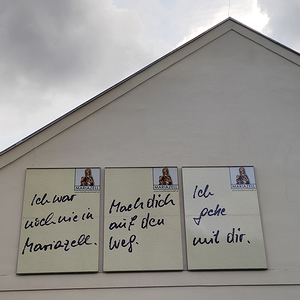 MARIAZELL
Ich war
noch nie in
Mariazell.
MARIAZELL
Mach dich
auf den
Weg.
MARIAZELL
Ich
gehe
mit dir.